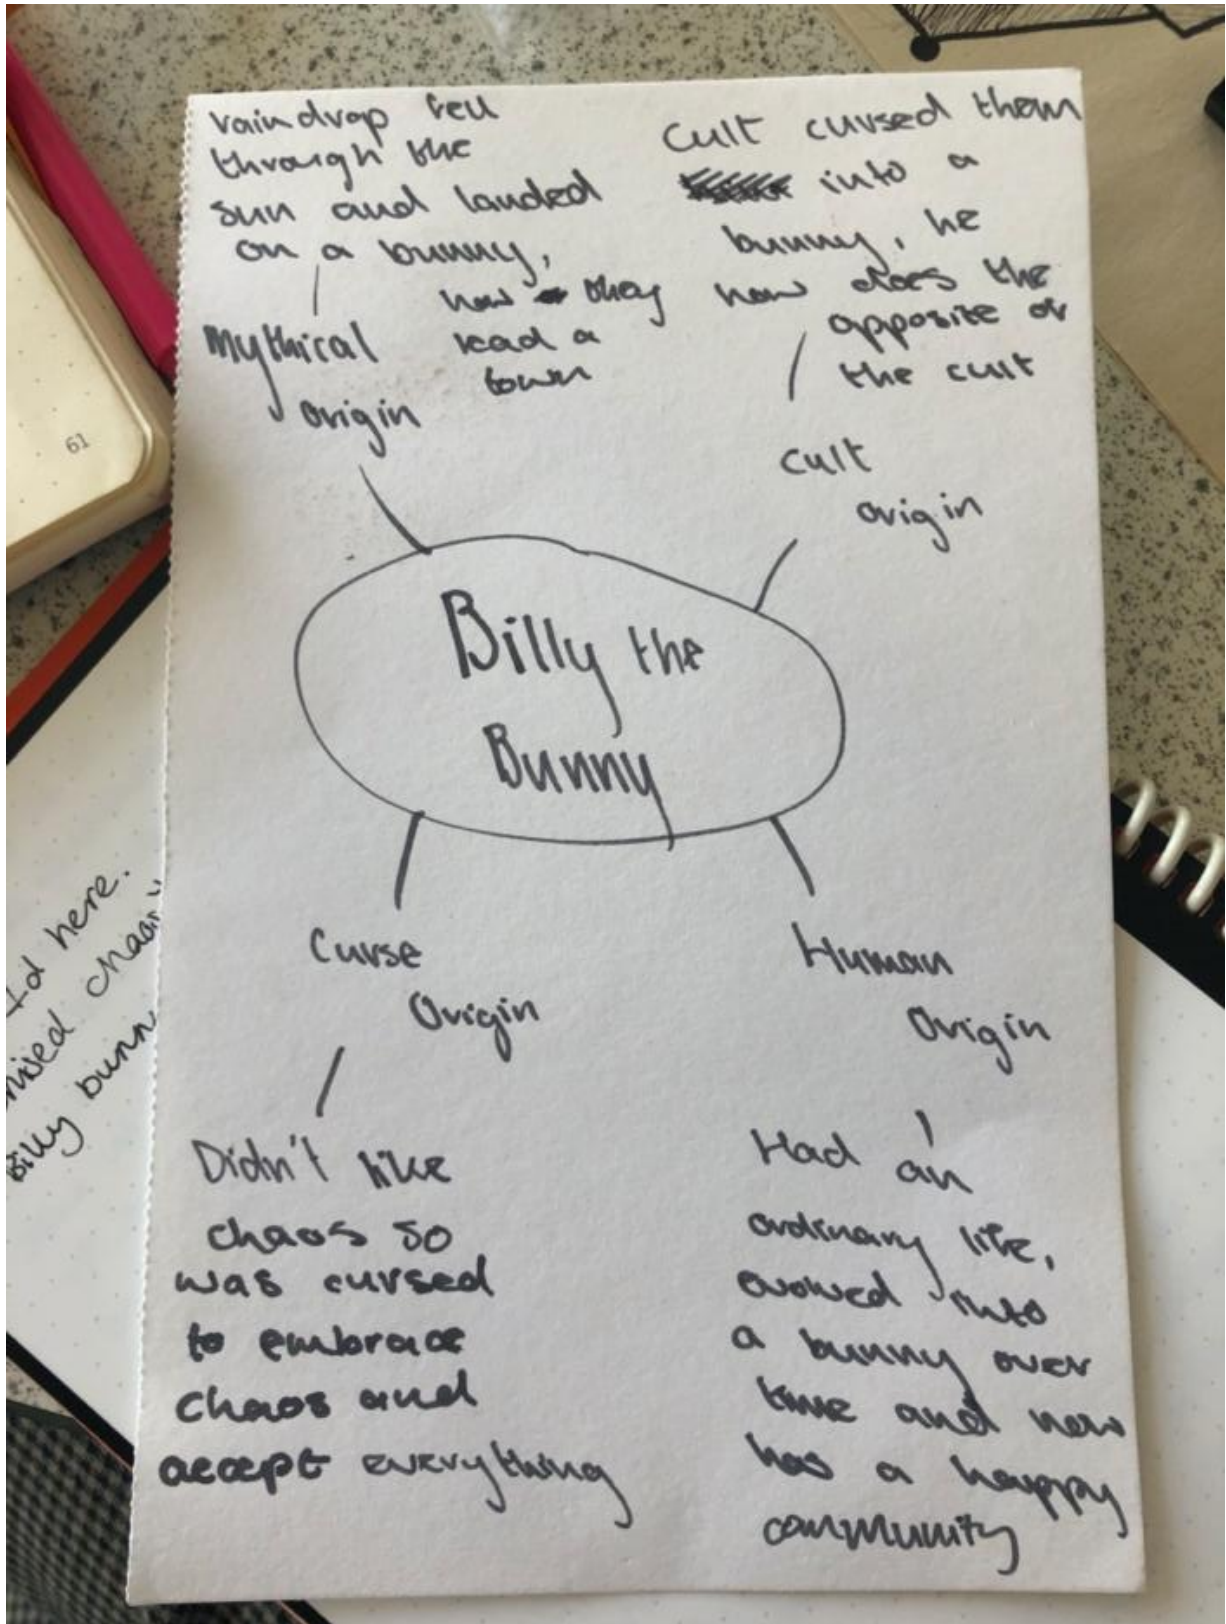 raindrop fell
through the
sun and landed
on a bunny,
now they
lead a
town
Mythical
origin
Cult cursed them
into a
bunny, he
now does the
opposite of
the cult
Cult
origin
Billy the
Bunny
Curse
Origin
Didn't like
chaos so
was cursed
to embrace
chaos and
accept everything
Human
Origin
Had an
ordinary life,
evolved into
a bunny over
time and now
has a happy
community
61
here.
Billy bunn